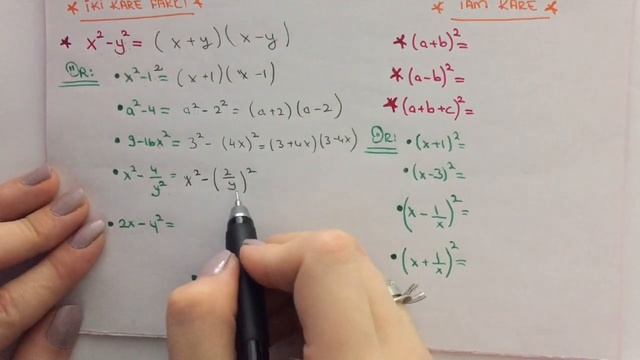 * İKİ KARE FARKI *
* x²-y² = (x+y)(x-y)
ÖR: • x²-1² = (x+1)(x-1)
• a²-4 = a²-2² = (a+2)(a-2)
• 9-16x² = 3²-(4x)² = (3+4x)(3-4x)
• x² - 4/y² = x² - (2/y)²
• 2x-y² =
* TAM KARE *
* (a+b)² =
* (a-b)² =
* (a+b+c)² =
ÖR: • (x+1)² =
• (x-3)² =
• (x - 1/x)² =
• (x + 1/x)² =